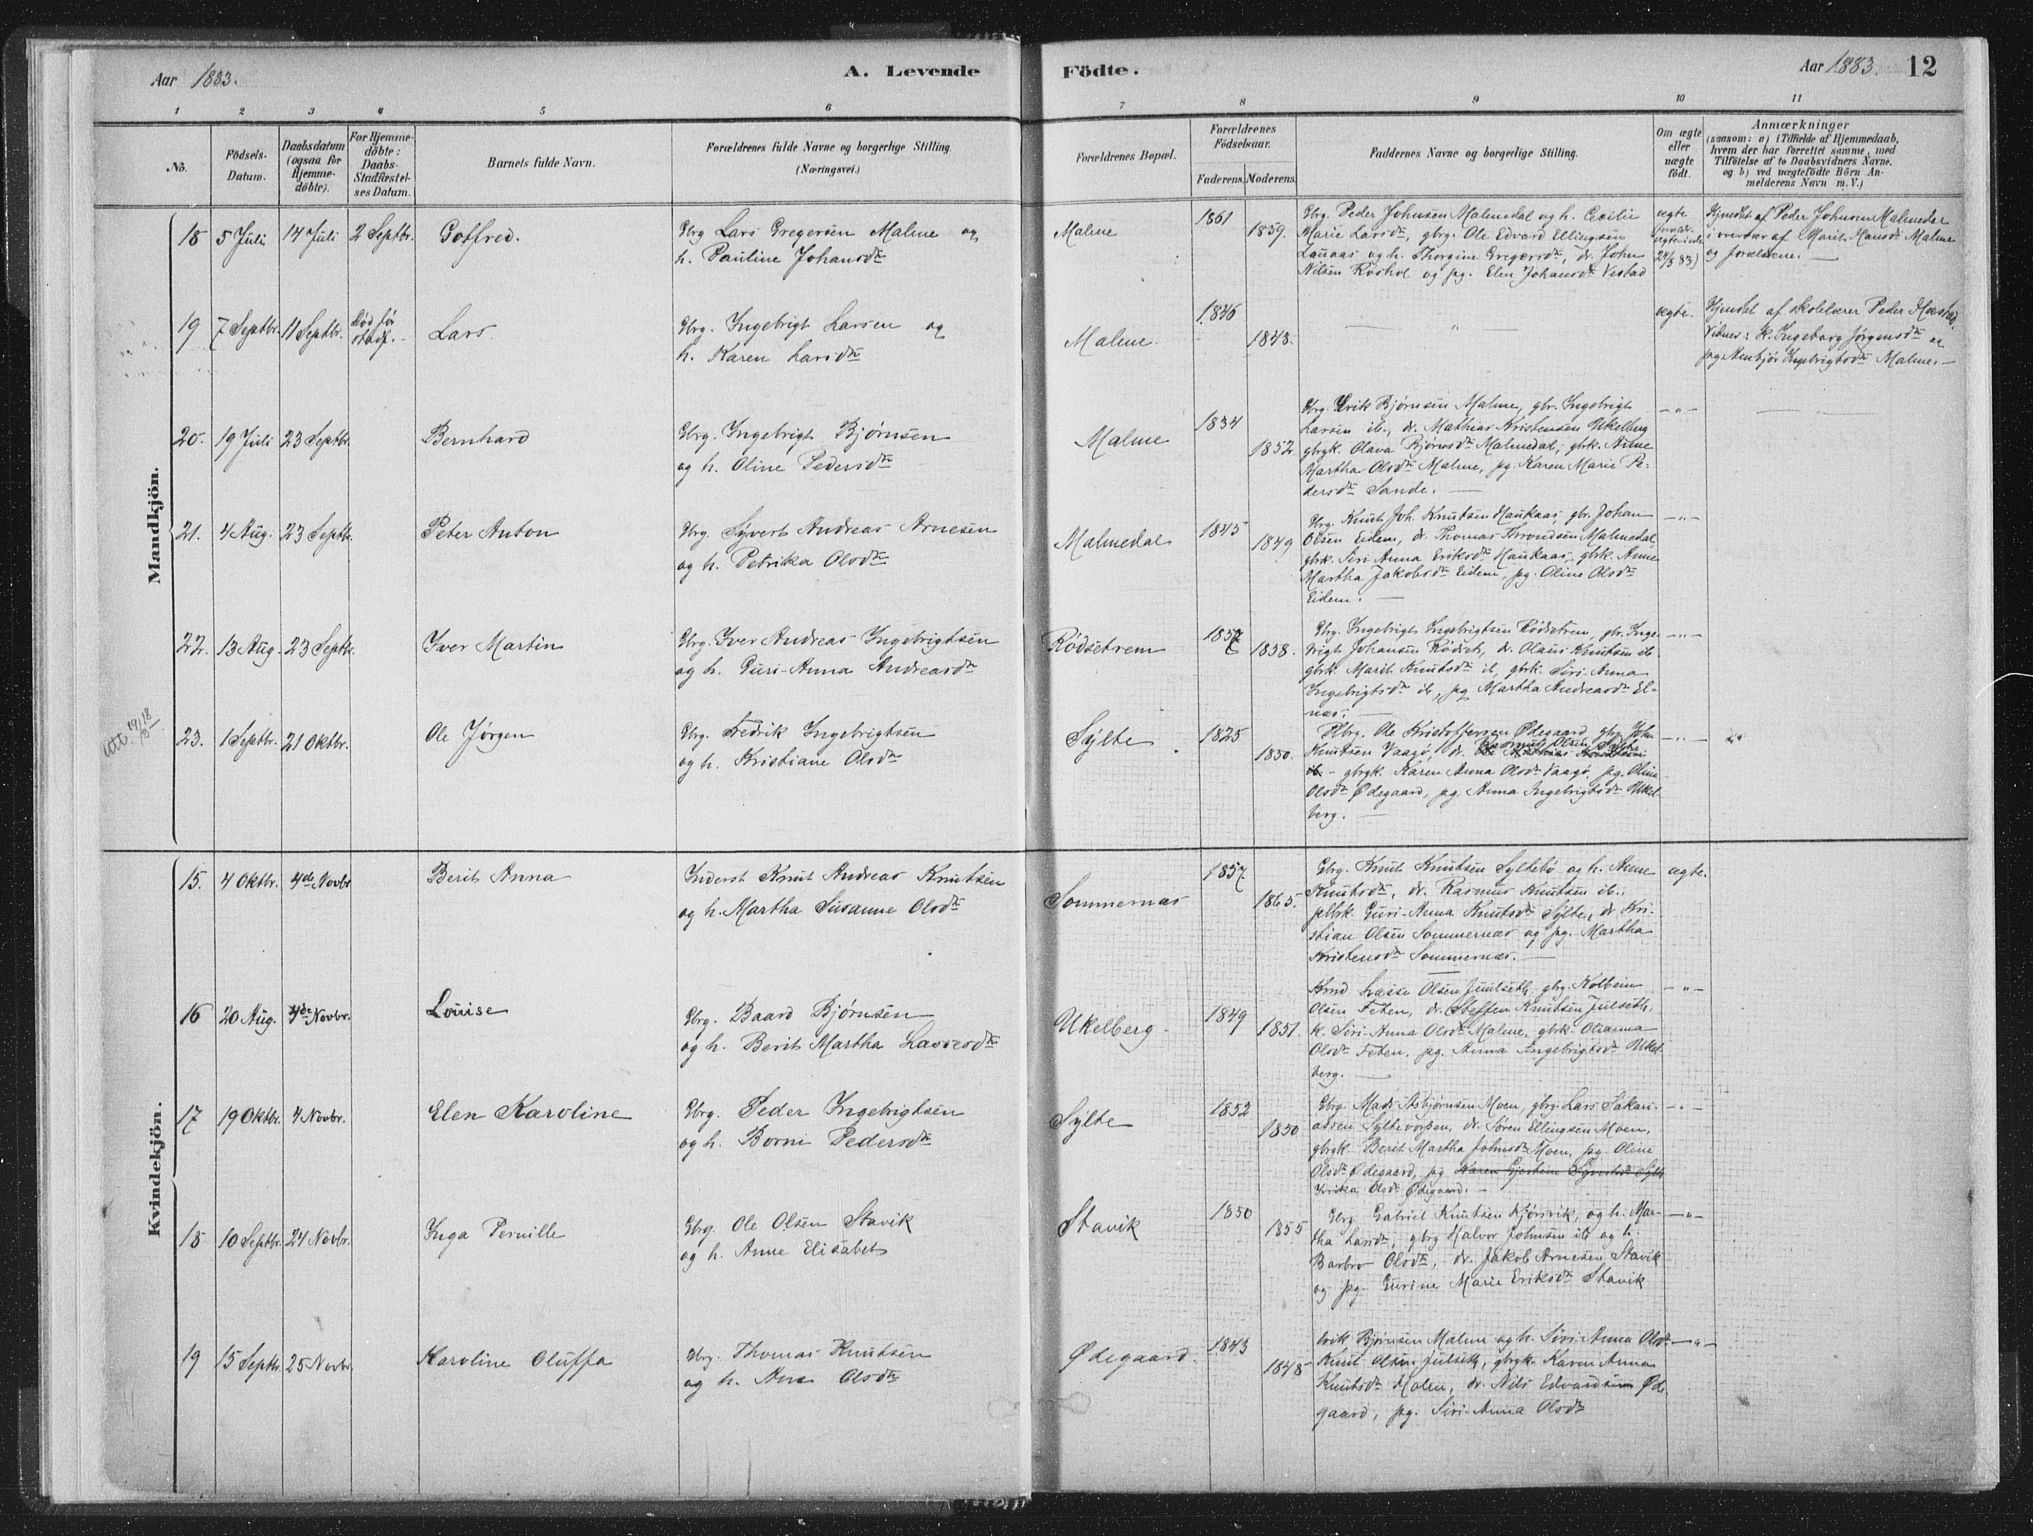 Aar 1883.
A. Levende
Födte.
Aar 1883.
12
1 2 3 4 5 6 7 8 9 10 11
No.
Födsels-
Datum.
Daabsdatum
(ogsaa for
Hjemme-
döbte).
For Hjemme-
döbte:
Daabs-
Stadfæstel-
ses Datum.
Barnets fulde Navn.
Forældrenes fulde Navne og borgerlige Stilling
(Næringsvei.)
Forældrenes Bopæl.
Forældrenes
Födselsaar.
Faderens. Moderens.
Faddernes Navne og borgerlige Stilling.
Om ægte
eller
uægte
födt.
Anmærkninger
(saasom: a) i Tilfælde af Hjemmedaab,
hvem der har forrettet samme, med
Tilföielse af to Daabsvidners Navne.
og b) ved uægtefödte Börn An-
melderens Navn m. V.)
Mandkjön.
18 5 Juli 14 Juli 2 Septbr. Gotfred.
Gbrg Lars Gregersen Malme og
h. Pauline Johansdtr
Malme
1861
1859.
Gbrg. Peder Johnsen Malmedal og h. Cecilie
Marie Larsdtr, gbrg. Ole Edvard Ellingsen
Lauaas og h. Thorgine Gregersdtr, dr. John
Nilsen Roshol og pg. Elen Johansdtr Vestad
ægte
Hjmdbt af Peder Johnsen Malmedal
i nærvær af Marit Hansdtr Malme
og forældrene.
19 7 Septbr. 11 Septbr. Død før
stadf. Lars.
Gbrg. Ingebrigt Larsen og
h. Karen Larsdtr
Malme.
1846
1843.
ægte.
Hjmdbt af skolelærer Peder Hæstad
Vidner: k. Ingeborg Jørgensdtr og
pg Annbjør Ingebrigtsdtr Malme.
20. 19 Juli 23 Septbr. Bernhard
Gbrg. Ingebrigt Bjørnsen
og h. Oline Pedersdtr
Malme
1834
1852.
Gbrg. Erik Bjørnsen Malme, gbr. Ingebrigt
Larsen ib., dr. Mathias Kristensen Ukelberg
gbrgk. Olava Bjørnsdtr Malmedal, gbrk. Anne
Martha Olsdtr Malme, pg. Karen Marie Pe-
dersdtr Sande.
21. 4 Aug. 23 Septbr. Peter Anton
Gbrg. Syvert Andreas Arnesen
og h. Petrika Olsdtr
Malmedal
1845
1849
Gbrg. Knut Joh. Knutsen Haukaas, gbr. Johan
Olsen Eidem, dr. Thomas Throndsen Malmedal
gbrk. Siri Anna Eriksdtr Haukaas, gbrk. Anne
Martha Jakobsdtr Eidem, pg. Oline Olsdtr
Eidem.
22. 13 Aug. 23 Septbr. Iver Martin
Gbrg. Iver Andreas Ingebrigtsen
og h. Guri-Anna Andreasdtr
Rødsetrem
1857
1858.
Gbrg. Ingebrigt Ingebrigtsen Rødsetrem, gbr. Inge-
brigt Johansen Rødset, dr. Olaus Knutsen ib.
gbrk. Marit Knutsdtr ib, gbrk. Siri-Anna
Ingebrigtsdtr ib, pg Martha Andreasdtr El-
nes.
Utt. 19/3 18
23. 1 Septbr. 21 Oktbr. Ole Jørgen
Gbrg. Fredrik Ingebrigtsen
og h. Kristiane Olsdtr
Sylte
1825
1830.
Gbrg. Ole Kristoffersen Ødegaard, gbg. John
Knutsen Vaagø, dr. Rasmus Olsen Sylte
ib. - gbrgk. Karen Anna Olsdtr Vaagø, pg. Oline
Olsdtr Ødegaard, pg. Anna Ingebrigtsdtr Ukel-
berg.
Kvindekjön.
15. 4 Oktbr. 4de Novbr Berit Anna
Inderst Knut Andreas Knutsen
og h. Martha Susanne Olsdtr
Sommernæs
1857
1865.
Gbrg. Knut Knutsen Syltebø og h. Anne
Knutsdtr, dr. Rasmus Knutsen ib.,
Guri-Anna Knutsdtr Sylte, dr Kri-
stian Olsen Sommernæs og pg. Martha
Kristensdtr Sommernæs.
ægte.
16 20 Aug. 4de Novbr. Louise
Gbrg. Baard Bjørnsen
og h. Berit Martha Lassesdtr
Ukelberg.
1849
1851.
Lasse Olsen Julseth, gbrg. Kolbein
Olsen Feten, dr. Steffen Knutsen Julseth,
k. Siri-Anna Olsdtr Malme, gbrk Olianna
Olsdtr Feten, pg. Anna Ingebrigtsdtr Ukel-
berg.
17 19 Oktbr. 4 Novbr. Elen Karoline
Gbrg. Peder Ingebrigtsen
og h. Borni Pedersdtr
Sylte
1852
1850
Gbrg. Mads Asbjørnsen Moen, gbrg. Lars Sakari-
assen Syltevorpen, dr. Søren Ellingsen Moen,
gbrgk. Berit Martha Johnsdtr Moen, pg. Oline
Olsdtr Ødegaard, pg Karen Gjertine Syvertsdtr Sylte
Olsdtr Ødegaard.
18 10 Septbr. 24 Novbr. Inga Pernille
Gbrg Ole Olsen Stavik
og h. Anne Elisabet
Stavik
1850
1855
Gbrg. Gabriel Knutsen Kjørsvik, og h. Mar-
tha Larsdtr, gbrg Halvor Johnsen ib og h.
Barbro Olsdtr, dr. Jakob Arnesen Stavik
og pg. Gurine Marie Eriksdtr Stavik
19 15 Septbr. 25 Novbr. Karoline Oluffa
Gbrg. Thomas Knutsen
og h. Ane Olsdtr
Ødegaard.
1843
1848
Erik Bjørnsen Malme og h. Siri-Anna Olsdtr
Knut Olsen Julseth, gbrgk. Karen Anna
Knutsdtr Malen, dr. Nils Edvardsen Øde-
gaard, pg. Siri-Anna Olsdtr